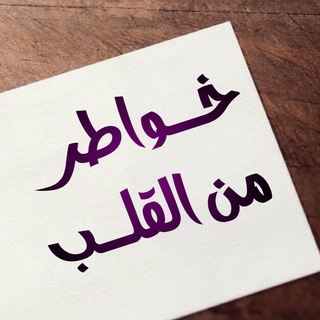 خواطر
من القلب